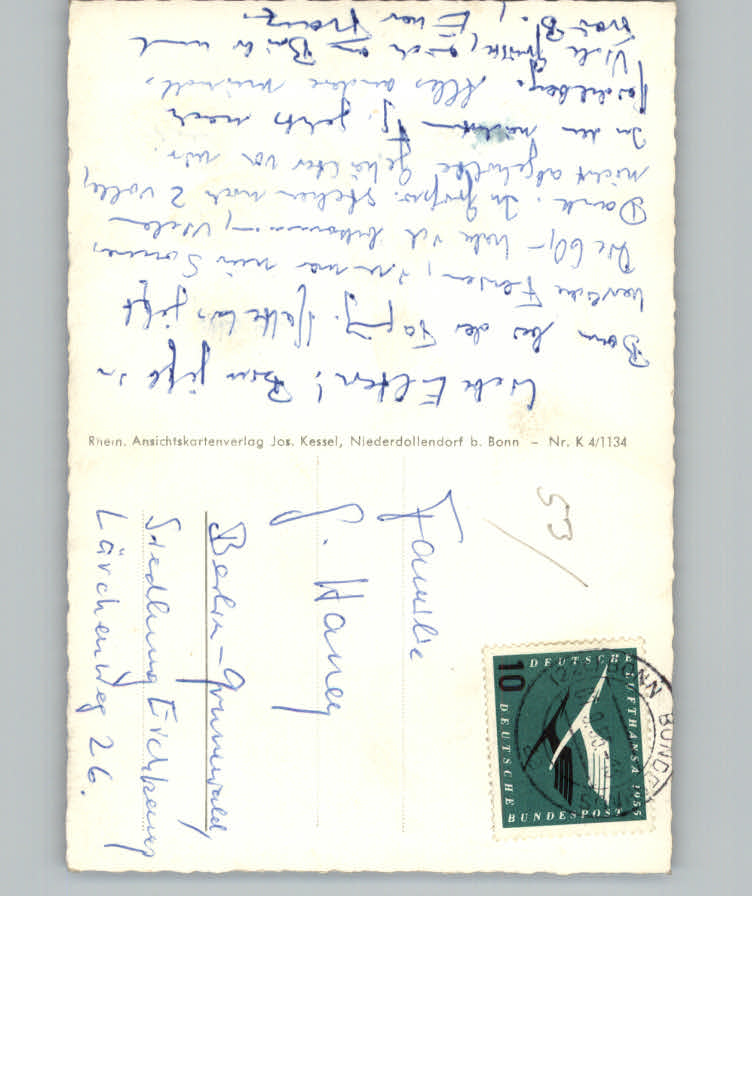 Liebe Eltern! Bin jetzt in
Bonn bei der Tag. Hatte bis jetzt
herrliche Ferien, immer nur Sonne.
Die 60,- habe ich bekommen, vielen
Dank. In stehen noch 2 volle,
nicht abgeholte vor mir
In den nächsten jetzt nach
Heidelberg. Alles andere mündl.
Viele Grüße, auch an und
Frau B., Euer Franz.
Rhein. Ansichtskartenverlag Jos. Kessel, Niederdollendorf b. Bonn – Nr. K 4/1134
53
Familie
G. Haney
Berlin-Grunewald,
Siedlung Eichkamp
Lärchenweg 26.
DEUTSCHE LUFTHANSA 1955
DEUTSCHE BUNDESPOST
10
BONN BUNDE